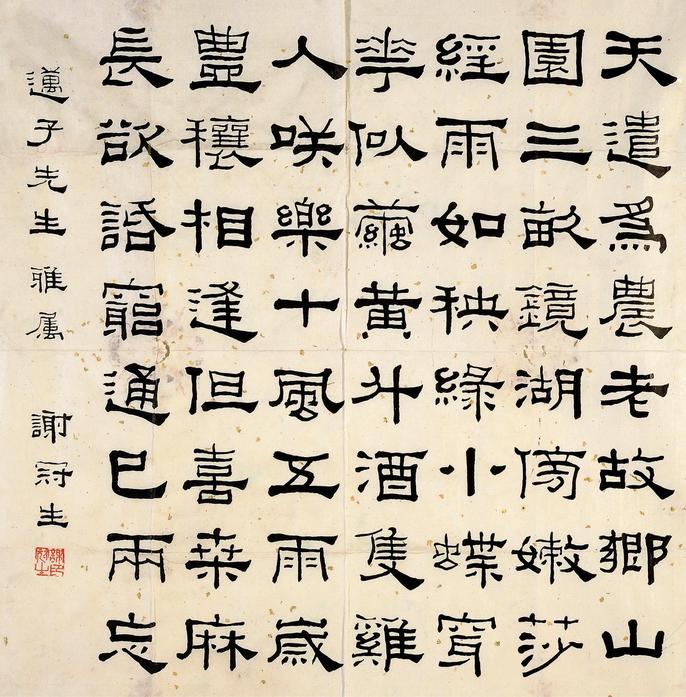 天遣爲農老故鄉山
園三畝鏡湖傍嫩莎
經雨如秧綠小蝶穿
華似繭黃斗酒隻雞
人咲樂十風五雨歲
豊穰相逢但喜桒麻
長欲話窮通已兩忘
邁子先生雅属 謝冠生
謝印冠生